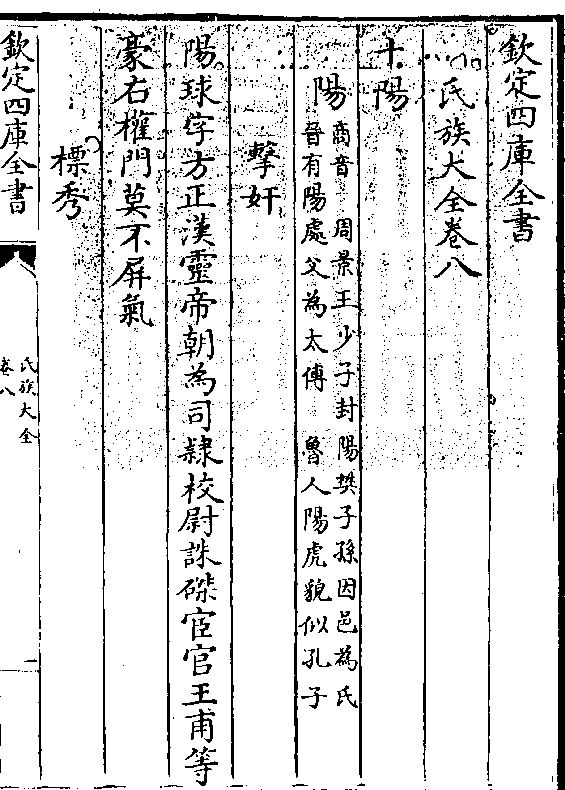 欽定四庫全書
氏族大全卷八
十陽
陽 商音 周景王少子封陽樊子孫因邑為氏
晉有陽處父為太傅 魯人陽虎貌似孔子
擊奸
陽球字方正漢靈帝朝為司隸校尉誅磔宦官王甫等
豪右權門莫不屏氣
標秀
欽定四庫全書
氏族大全
卷八
一